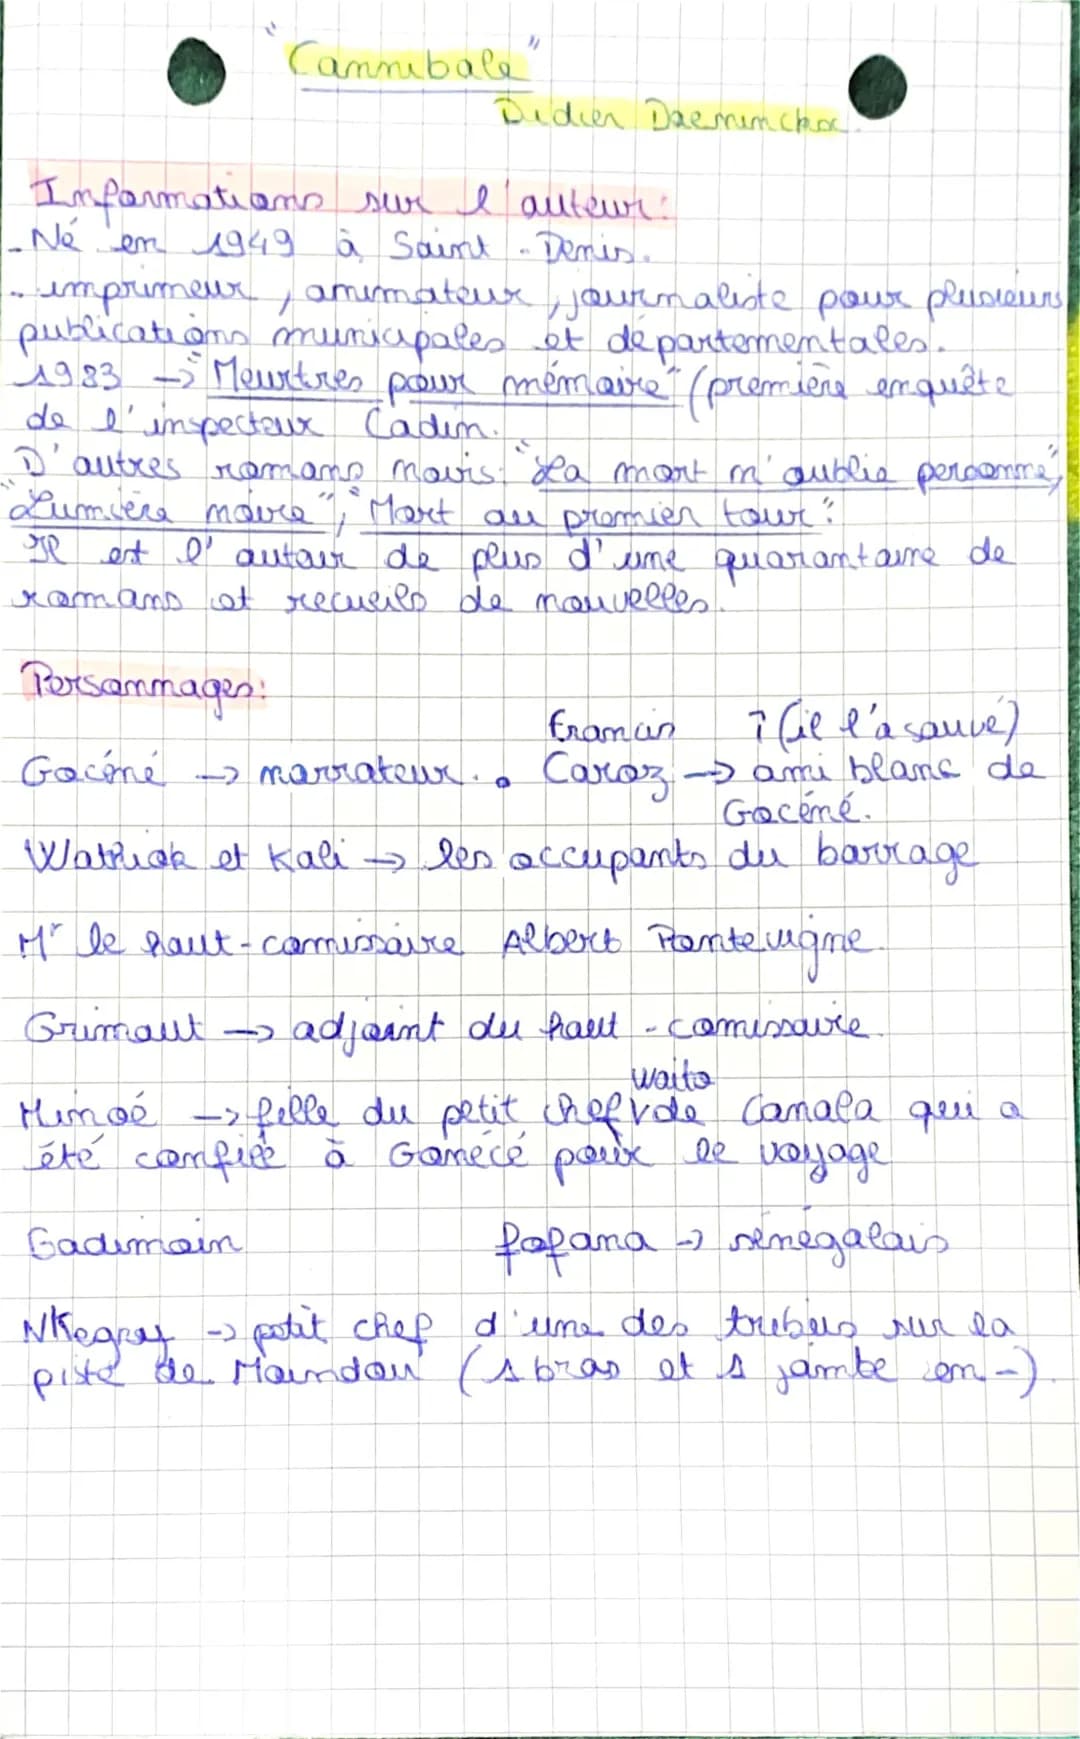 "Cannibale"
Didier Daeninckx.
Informations sur l'auteur:
- Né en 1949 à Saint-Denis.
- imprimeur, animateur, journaliste pour plusieurs
publications municipales et départementales.
1983 → "Meurtres pour mémoire" (première enquête
de l'inspecteur Cadin.
D'autres romans noirs: "La mort n'oublie personne",
"Lumière noire", "Mort au premier tour".
Il est l'auteur de plus d'une quarantaine de
romans et recueils de nouvelles.
Personnages:
Francis ↑ (il l'a sauvé)
Gocéné → narrateur. • Caroz → ami blanc de
Gocéné.
Wathiok et Kali → les occupants du barrage
Mr le haut-comissaire Albert Pontevigne
Grimaut → adjoint du haut-comissaire.
Waito
Minoé → fille du petit chef v de Canala qui a
été confiée à Gonécé pour le voyage
Badimoin fofana → sénégalais
NKegray → petit chef d'une des tribus sur la
piste de Moindou (1 bras et 1 jambe en -).